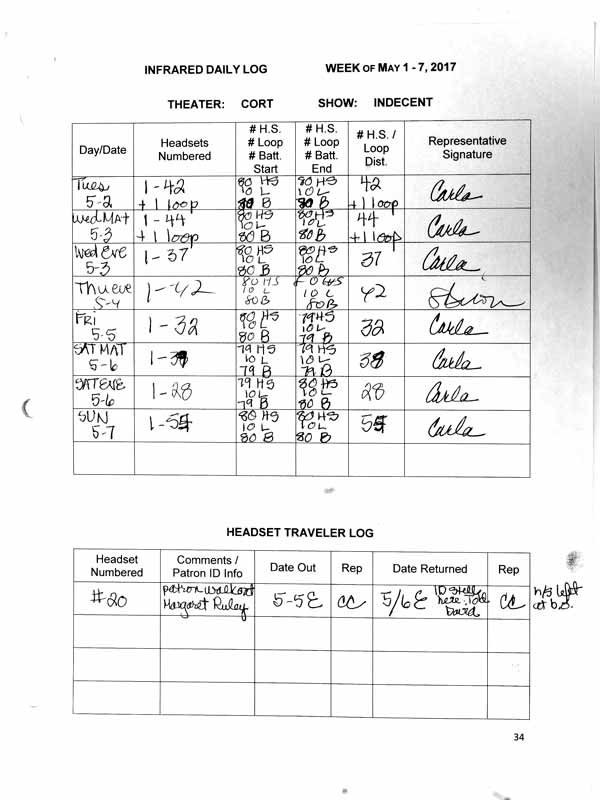 INFRARED DAILY LOG WEEK OF MAY 1 - 7, 2017
THEATER: CORT SHOW: INDECENT
Day/Date Headsets Numbered # H.S. # Loop # Batt. Start # H.S. # Loop # Batt. End # H.S. / Loop Dist. Representative Signature
Tues 5-2 1-42 +1 loop 80 HS 10 L 80 B 80 HS 10 L 80 B 42 +1 loop Carla
Wed MAT 5-3 1-44 +1 loop 80 HS 10 L 80 B 80 HS 10 L 80 B 44 +1 loop Carla
Wed Eve 5-3 1-37 80 HS 10 L 80 B 80 HS 10 L 80 B 37 Carla
Thu eve 5-4 1-42 80 HS 10 L 80 B 80 HS 10 L 80B 42
FRI 5-5 1-32 80 HS 10 L 80 B 79 HS 10 L 79 B 32 Carla
SAT MAT 5-6 1-38 79 HS 10 L 79 B 79 HS 10 L 79 B 38 Carla
SAT EVE 5-6 1-28 79 HS 10 L 79 B 80 HS 10 L 80 B 28 Carla
SUN 5-7 1-54 80 HS 10 L 80 B 80 HS 10 L 80 B 54 Carla
HEADSET TRAVELER LOG
Headset Numbered Comments / Patron ID Info Date Out Rep Date Returned Rep
#20 patron walkout Margaret Ruley 5-5E CC 5/6 E ID still here. Told David CC h/s left at b.o.
34